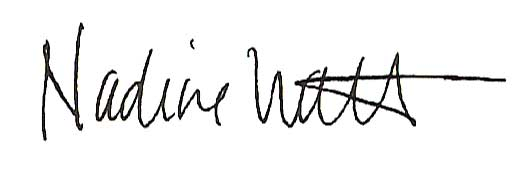 Nadine Watt